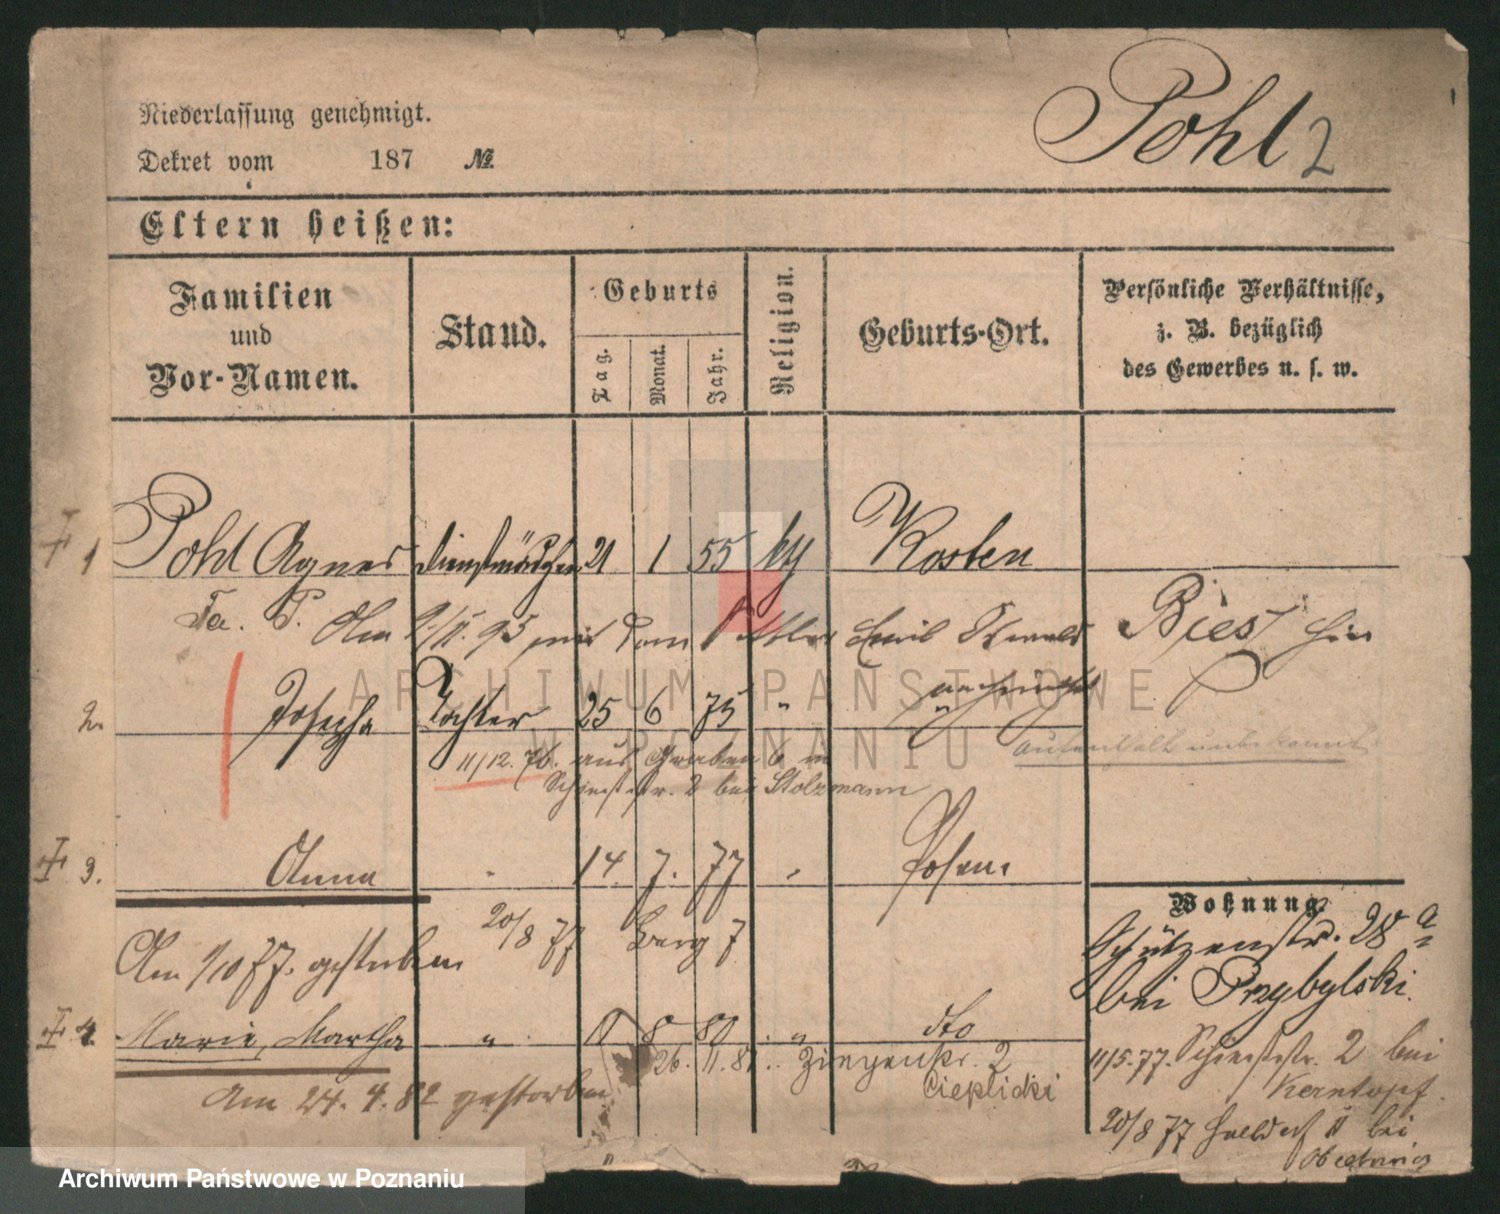 Niederlassung genehmigt.
Dekret vom 187 №
Pohl 2
Eltern heißen:
Familien und Vor-Namen.
Stand.
Geburts
Tag.
Monat.
Jahr.
Religion.
Geburts-Ort.
Persönliche Verhältnisse, z. B. bezüglich des Gewerbes u. s. w.
1 Pohl Agnes Dienstmädchen 21 1 55 kth Kosten
Am 9/11. 95 mit dem Emil
2. Josepha Tochter 25 6 75 "
Aufenthalt unbekannt
11/12. 76. aus Graben 6 in
2 bei Stolzmann
3. Anna 14 7. 77 Posen
20/8 77 Berg 7
Am 1/10 77. gestorben
4. Marie, Martha " 8 80 " dto
26. 11. 81. Ziegenstr. 2
Cieplicki
Am 24. 4. 82 gestorben
Wohnung
Schützenstr. 28 a
bei Przybylski.
11/5. 77. 2 bei
Kerntopf.
20/8 77 bei
ARCHIWUM PAŃSTWOWE
W POZNANIU
Archiwum Państwowe w Poznaniu